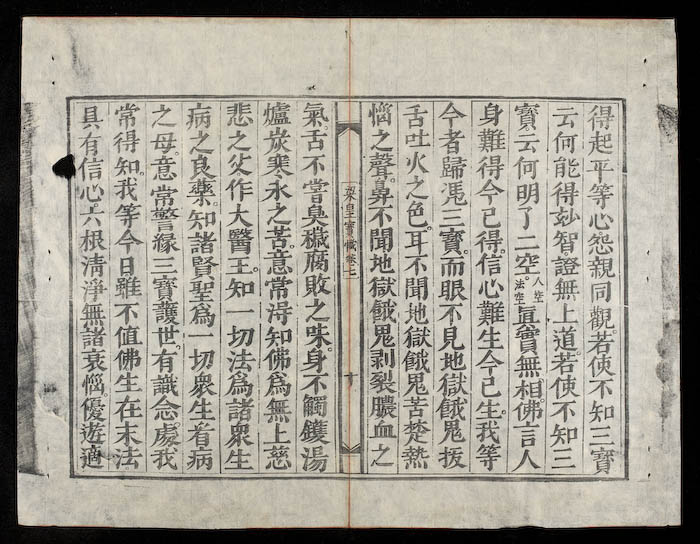 得起平等心怨親同觀。若使不知三寶
云何能得玅智。證無上道。若使不知三
寶。云何明了二空。人空法空眞實無相。佛言人
身難得今已得。信心難生今已生。我等
今者歸凭三寶。而眼不見地獄餓鬼拔
舌吐火之色。耳不聞地獄餓鬼苦楚熱
惱之聲。鼻不聞地獄餓鬼剥裂膿血之
梁皇寶懺卷七 十
氣。舌不嘗臭穢腐敗之味。身不觸鑊湯
爐炭寒氷之苦。意常得知佛爲無上慈
悲之父作大醫王。知一切法爲諸衆生
病之良藥。知諸賢聖爲一切衆生看病
之母。意常警緣三寶護世。有識念處。我
常得知。我等今日雖不值佛生在末法
具有信心六根清淨無諸衰惱。優遊適